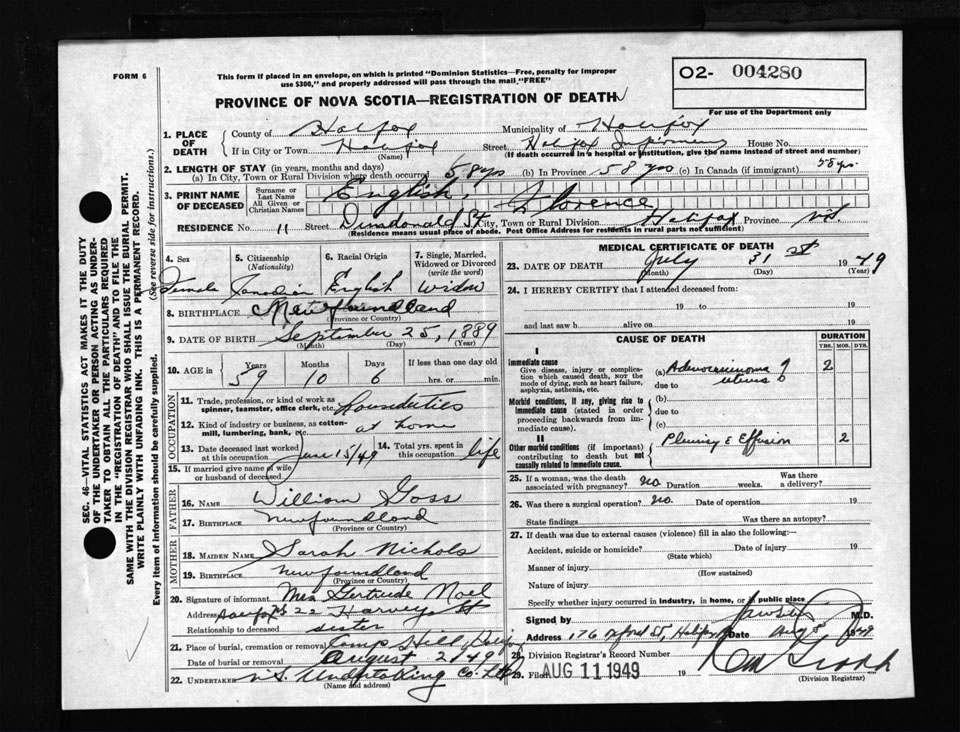 FORM 6
This form if placed in an envelope, on which is printed "Dominion Statistics—Free, penalty for improper
use $300," and properly addressed will pass through the mail, "FREE"
O2- 004280
For use of the Department only
PROVINCE OF NOVA SCOTIA—REGISTRATION OF DEATH
1. PLACE OF DEATH
County of Halifax Municipality of Halifax
If in City or Town Halifax Street Halifax Infirmary House No.
(Name) (If death occurred in a hospital or institution, give the name instead of street and number)
2. LENGTH OF STAY (in years, months and days)
(a) In City, Town or Rural Division where death occurred 58 yrs (b) In Province 58 yrs (c) In Canada (if immigrant) 58 yrs.
3. PRINT NAME OF DECEASED
Surname or Last Name English
All Given or Christian Names Florence
RESIDENCE No. 11 Street Dundonald St City, Town or Rural Division Halifax Province N.S.
(Residence means usual place of abode. Post Office Address for residents in rural parts not sufficient)
4. Sex Female
5. Citizenship (Nationality) Canadian
6. Racial Origin English
7. Single, Married, Widowed or Divorced (write the word) Widow
8. BIRTHPLACE Newfoundland
(Province or Country)
9. DATE OF BIRTH September 25, 1889
(Month) (Day) (Year)
10. AGE in Years 59 Months 10 Days 6 If less than one day old hrs. or min.
OCCUPATION
11. Trade, profession, or kind of work as spinner, teamster, office clerk, etc. housduties
12. Kind of industry or business, as cotton-mill, lumbering, bank, etc. at home
13. Date deceased last worked at this occupation June 15/49
14. Total yrs. spent in this occupation life
15. If married give name of wife or husband of deceased
FATHER
16. NAME William Goss
17. BIRTHPLACE Newfoundland
(Province or Country)
MOTHER
18. MAIDEN NAME Sarah Nichols
19. BIRTHPLACE Newfoundland
(Province or Country)
20. Signature of informant Mrs Gertrude Noel
Address Halifax NS 22 Harvey St
Relationship to deceased sister
21. Place of burial, cremation or removal Camp Hill, Halifax
Date of burial or removal August 2/49
22. UNDERTAKER N.S. Undertaking Co. Ltd
(Name and address)
MEDICAL CERTIFICATE OF DEATH
23. DATE OF DEATH July 31st 1949
(Month) (Day) (Year)
24. I HEREBY CERTIFY that I attended deceased from:
19 to 19
and last saw h alive on 19
CAUSE OF DEATH
DURATION
YRS. MOS. DYS.
I
Immediate cause
Give disease, injury or complication which caused death, not the mode of dying, such as heart failure, asphyxia, asthenia, etc.
(a) Adenocarcinoma of uterus 2
due to
Morbid conditions, if any, giving rise to immediate cause (stated in order proceeding backwards from immediate cause).
(b)
due to
(c)
II
Other morbid conditions (if important) contributing to death but not causally related to immediate cause.
Pleurisy c Effusion 2
25. If a woman, was the death associated with pregnancy? No Duration weeks. Was there a delivery?
26. Was there a surgical operation? No. Date of operation 19
State findings Was there an autopsy?
27. If death was due to external causes (violence) fill in also the following:—
Accident, suicide or homicide? Date of injury 19
(State which)
Manner of injury
(How sustained)
Nature of injury
Specify whether injury occurred in industry, in home, or in public place
Signed by M.D.
Address 176 Oxford St, Halifax Date Aug 1949
28. Division Registrar's Record Number
29. Filed AUG 11 1949 19
(Division Registrar)
SEC. 46—VITAL STATISTICS ACT MAKES IT THE DUTY
OF THE UNDERTAKER OR PERSON ACTING AS UNDER-
TAKER TO OBTAIN ALL THE PARTICULARS REQUIRED
IN THE "REGISTRATION OF DEATH" AND TO FILE THE
SAME WITH THE DIVISION REGISTRAR WHO SHALL ISSUE THE BURIAL PERMIT.
WRITE PLAINLY WITH UNFADING INK. THIS IS A PERMANENT RECORD.
Every item of information should be carefully supplied. (See reverse side for instructions.)